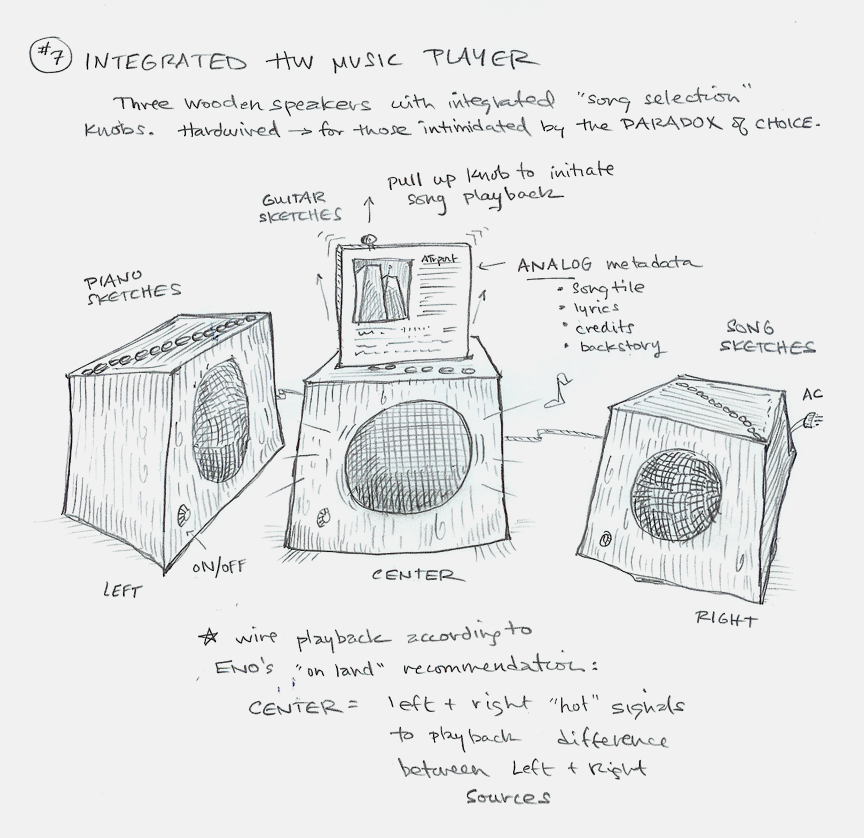 #7 INTEGRATED HW MUSIC PLAYER
Three wooden speakers with integrated "song selection"
knobs. Hardwired → for those intimidated by the PARADOX of CHOICE.
pull up knob to initiate
song playback
GUITAR
SKETCHES
PIANO
SKETCHES
Airport
← ANALOG metadata
• songtile
• lyrics
• credits
• backstory
SONG
SKETCHES
AC
ON/OFF
LEFT
CENTER
RIGHT
☆ wire playback according to
ENO'S "on land" recommendation:
CENTER = left + right "hot" signals
to playback difference
between Left + Right
Sources